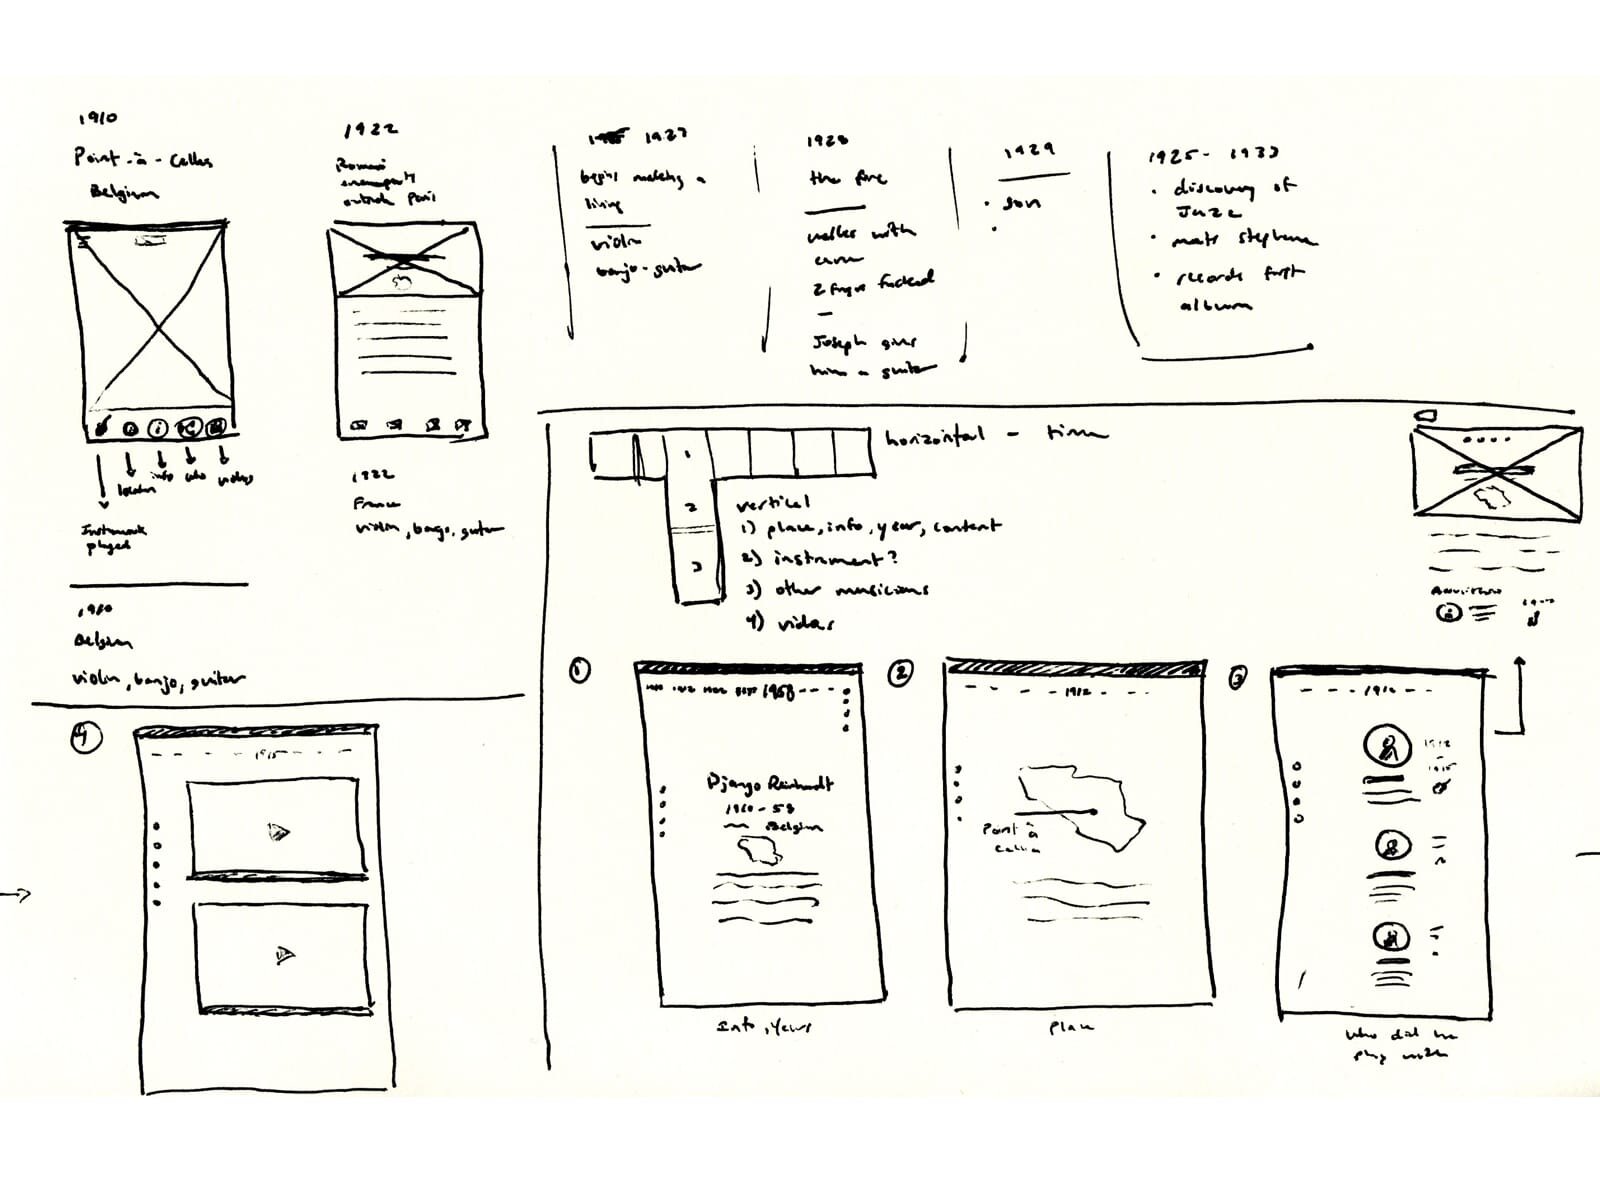 1910
Point-à-Celles
Belgium
location
info
who
videos
Instruments
played
1910
Belgium
violin, banjo, guitar
1922
Romani
encampments
outside Paris
1922
France
violin, banjo, guitar
1927
begins making a
living
violin
banjo-guitar
1928
the fire
walks with
cane
2 fingers fucked
Joseph gives
him a guitar
1929
son
1925 - 1933
discovery of
Jazz
meets stephane
records first
album
horizontal - time
1
2
3
vertical
1) place, info, year, content
2) instrument?
3) other musicians
4) videos
1
1958
Django Reinhardt
1910 - 53
Belgium
Info, Years
2
1912
Point à
Celles
place
3
1910
1912
1915
who did he
play with
4
1915